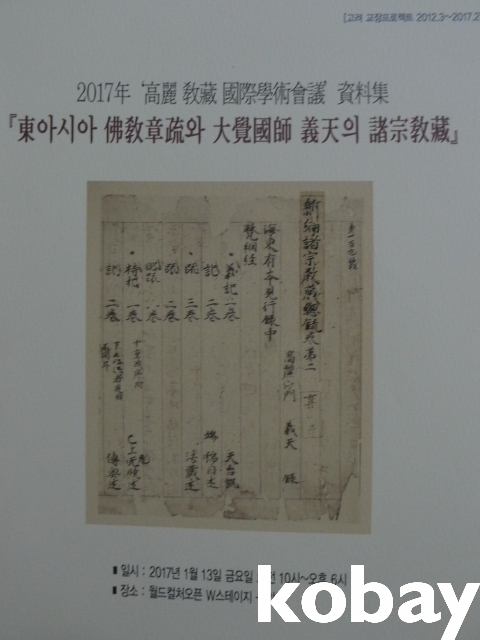 [고려 교장프로젝트 2012.3~2017.2
2017年 '高麗 敎藏 國際學術會議' 資料集
『東아시아 佛敎章疏와 大覺國師 義天의 諸宗敎藏』
新編諸宗教藏總錄卷第二
高麗沙門 義天 錄
海東有本見行錄中
梵網經
義記 一卷 天台說
記 二卷
疏 三卷 法藏述
疏 二卷
記 二卷 傳奧述
■ 일시 : 2017년 1월 13일 금요일 오전 10시~오후 6시
■ 장소 : 월드컬처오픈 W스테이지
kobay